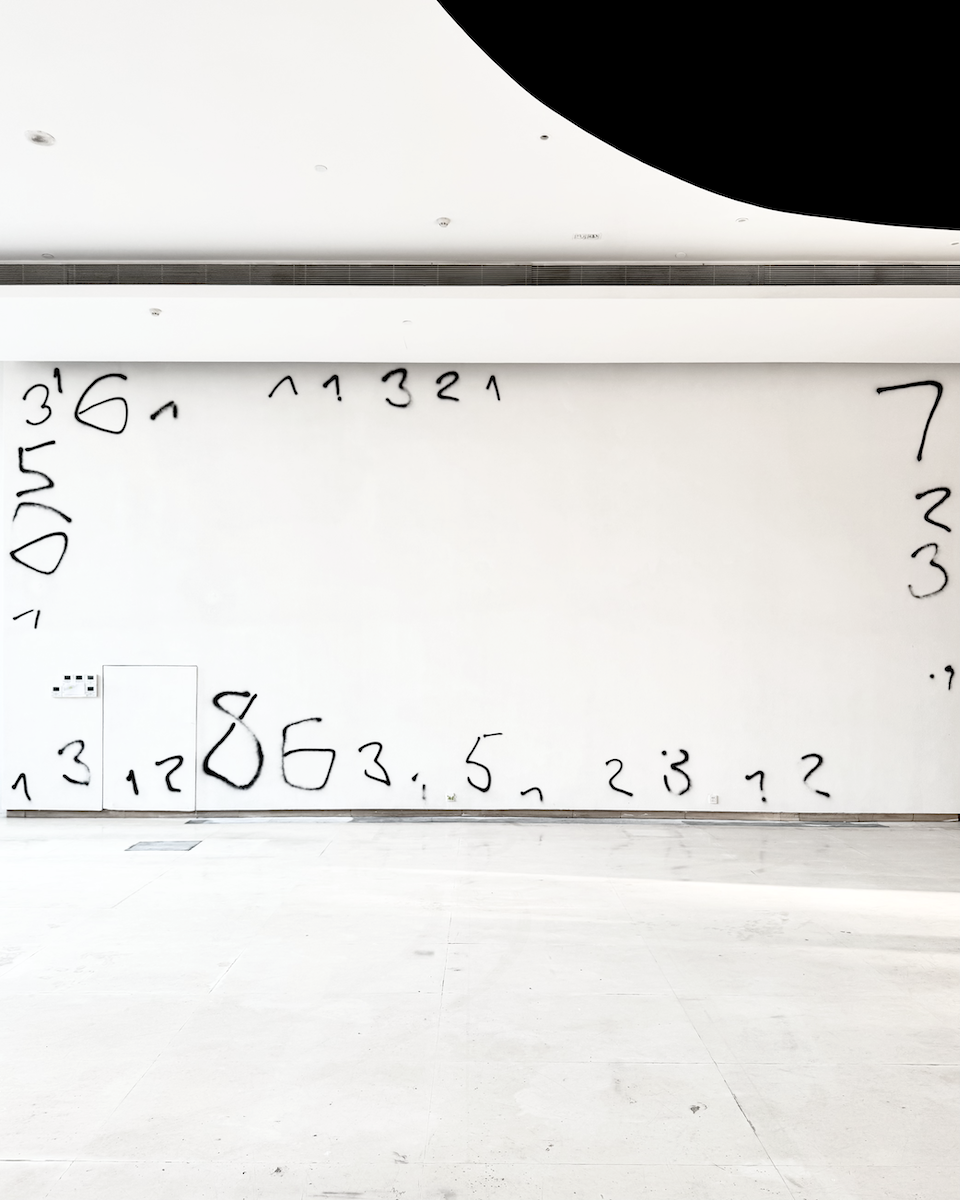 3 1 6 1 1 1 3 2 1 7
5
2
7
0 3
1
1
1 3 1 2 8 6 3 1 5 1 2 3 1 2